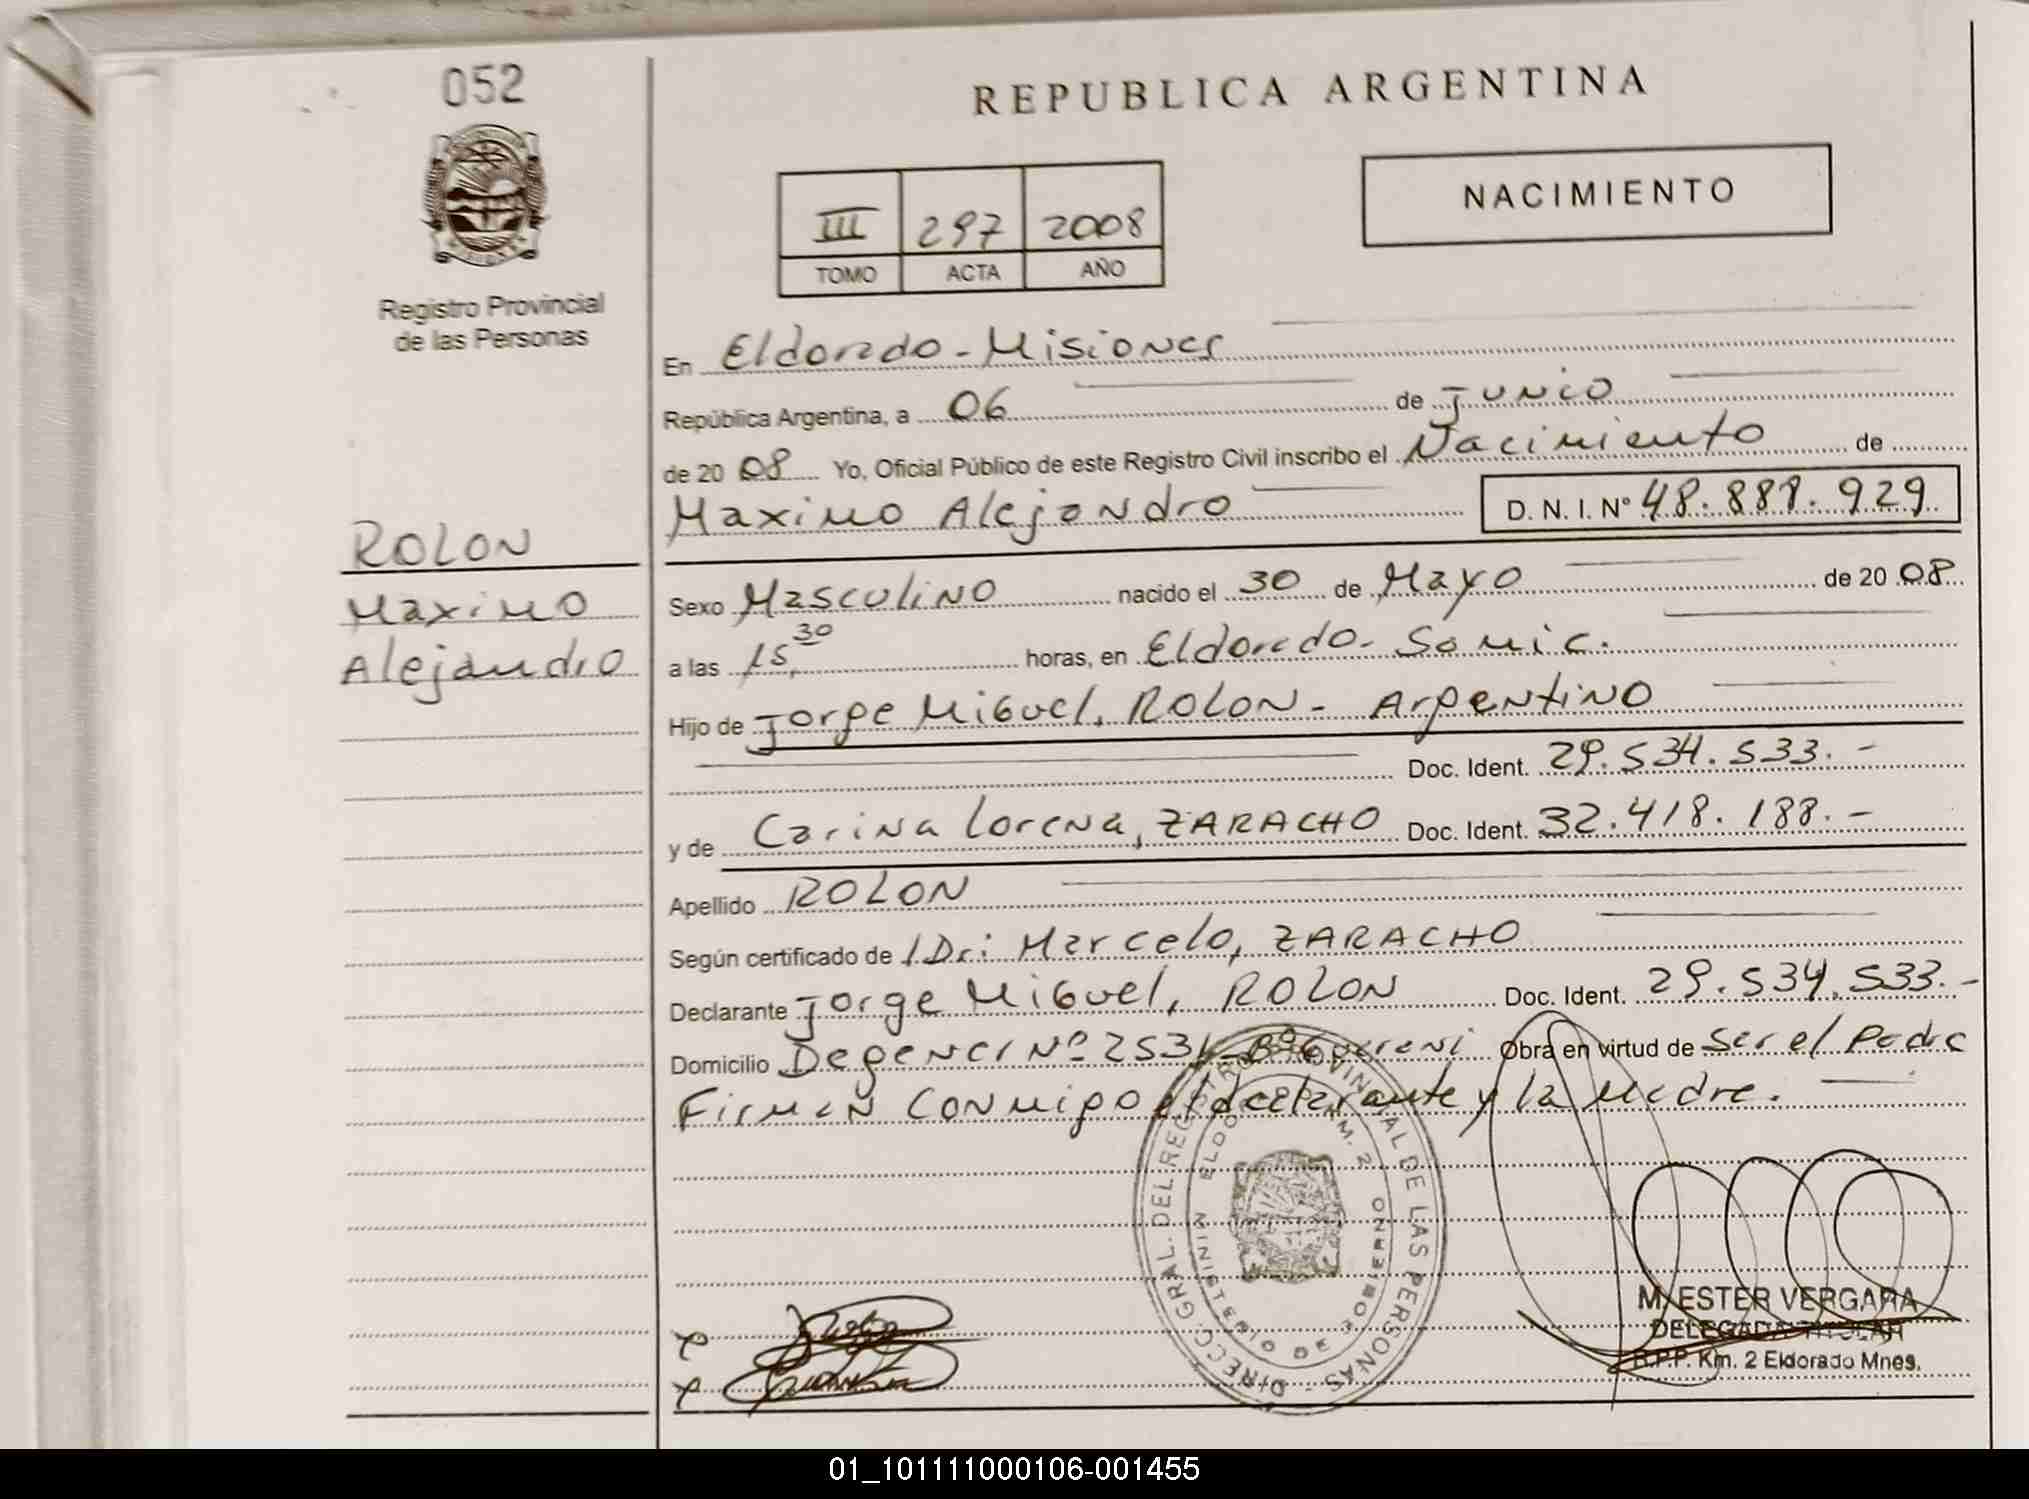 052
REPUBLICA ARGENTINA
NACIMIENTO
III 297 2008
TOMO ACTA AÑO
Registro Provincial
de las Personas
En Eldorado - Misiones
República Argentina, a 06 de Junio
de 2008 Yo, Oficial Público de este Registro Civil inscribo el Nacimiento de
Maximo Alejandro D. N. I. Nº 48.888.929
ROLON
Maximo
Alejandro
Sexo Masculino nacido el 30 de Mayo de 2008
a las 15,30 horas, en Eldorado - Samic.
Hijo de Jorge Miguel, ROLON - Argentino
Doc. Ident. 29.534.533.-
y de Carina Lorena, ZARACHO Doc. Ident. 32.418.188.-
Apellido ROLON
Según certificado de Marcelo, ZARACHO
Declarante Jorge Miguel, ROLON Doc. Ident. 29.534.533.-
Domicilio Nº Obra en virtud de Ser el Padre
Firman conmigo el declarante y la Madre.
DIRECC. GRAL. DEL REGISTRO PROVINCIAL DE LAS PERSONAS -
MINISTERIO DE GOBIERNO
M. ESTER VERGARA
DELEGADA TITULAR
R.P.P. Km. 2 Eldorado Mnes.
01_101111000106-001455